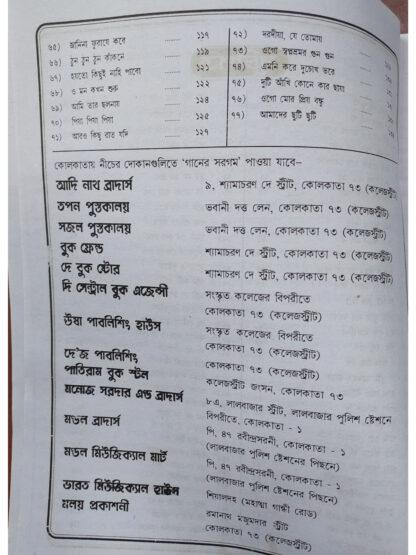 ৬৫) জানিনা ফুরাবে কবে ...... ১১৭
৬৬) ঠুন ঠুন ঠুন কাঁকনে ...... ১১৯
৬৭) হয়তো কিছুই নাহি পাবো ...... ১২১
৬৮) ও মন কখন শুরু ...... ১২২
৬৯) আমি তার ছলনায় ...... ১২৪
৭০) পিয়া পিয়া পিয়া ...... ১২৫
৭১) আরও কিছু রাত যদি ...... ১২৭
৭২) দরদীয়া, যে তোমায়
৭৩) ওগো স্বপ্নভ্রমর গুন গুন
৭৪) এমনি করে দুচোখ ভরে
৭৫) দুটি আঁখি কোনে কার ছায়া
৭৬) ওগো মোর প্রিয় বন্ধু
৭৭) আমাদের ছুটি ছুটি
কোলকাতায় নীচের দোকানগুলিতে ‘গানের সরগম’ পাওয়া যাবে–
আদি নাথ ব্রাদার্স ৯, শ্যামাচরণ দে স্ট্রীট, কোলকাতা ৭৩ (কলেজস্ট্রীট)
তপন পুস্তকালয় ভবানী দত্ত লেন, কোলকাতা ৭৩ (কলেজস্ট্রীট)
সজল পুস্তকালয় ভবানী দত্ত লেন, কোলকাতা ৭৩ (কলেজস্ট্রীট)
বুক ফ্রেন্ড শ্যামাচরণ দে স্ট্রীট, কোলকাতা ৭৩ (কলেজস্ট্রীট)
দে বুক ষ্টোর শ্যামাচরণ দে স্ট্রীট, কোলকাতা ৭৩ (কলেজস্ট্রীট)
দি সেন্ট্রাল বুক এজেন্সী সংস্কৃত কলেজের বিপরীতে
কোলকাতা ৭৩ (কলেজস্ট্রীট)
ঊষা পাবলিশিং হাউস সংস্কৃত কলেজের বিপরীতে
কোলকাতা ৭৩ (কলেজস্ট্রীট)
দে'জ পাবলিশিং কোলকাতা ৭৩ (কলেজস্ট্রীট)
পাতিরাম বুক স্টল কলেজস্ট্রীট জাংসন, কোলকাতা ৭৩
মনোজ সরদার এন্ড ব্রাদার্স ৮এ, লালবাজার স্ট্রীট, লালবাজার পুলিশ ষ্টেশনে
বিপরীতে, কোলকাতা - ১
মন্ডল ব্রাদার্স পি, ৪৭ রবীন্দ্রসরনী, কোলকাতা - ১
(লালবাজার পুলিশ ষ্টেশনের পিছনে)
মন্ডল মিউজিক্যাল মার্ট পি, ৪৭ রবীন্দ্রসরনী, কোলকাতা - ১
(লালবাজার পুলিশ ষ্টেশনের পিছনে)
ভারত মিউজিক্যাল হাউস শিয়ালদহ (মহাত্মা গান্ধী রোড)
মলয় প্রকাশনী রমানাথ মজুমদার স্ট্রীট
কোলকাতা ৭৩ (কলেজস্ট্রীট)